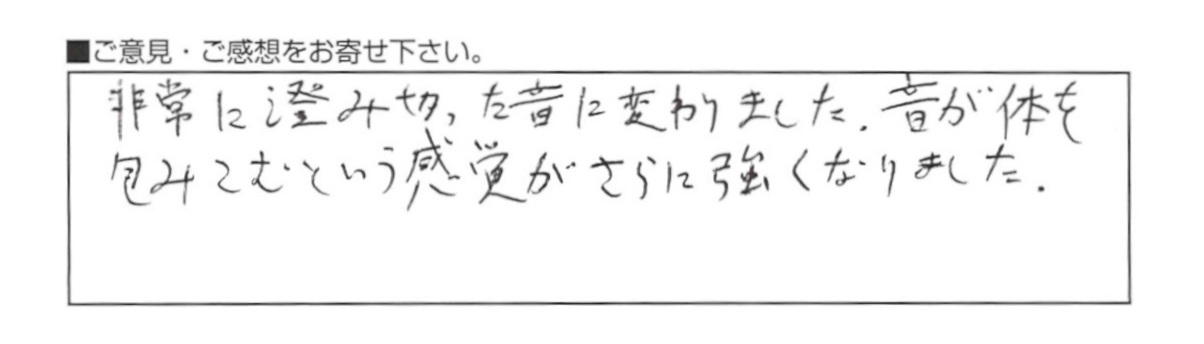 ■ご意見・ご感想をお寄せ下さい。
非常に澄み切った音に変わりました。音が体を
包みこむという感覚がさらに強くなりました。